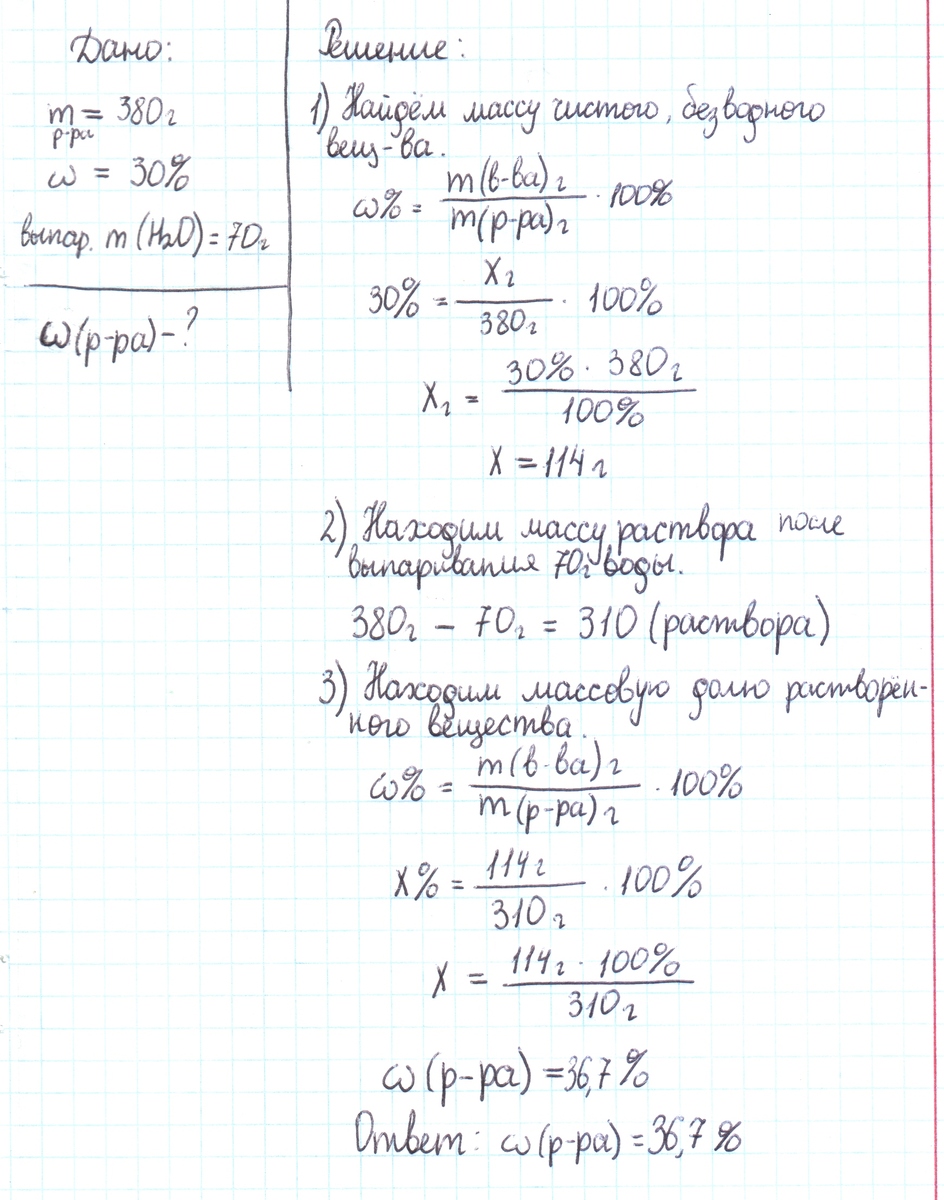 Дано:
m = 380г
р-ра
ω = 30%
выпар. m (H₂O) = 70г
ω(р-ра) - ?
Решение:
1) Найдём массу чистого, безводного
вещ-ва.
ω% = m(в-ва)г / m(р-ра)г · 100%
30% = Xг / 380г · 100%
Xг = 30% · 380г / 100%
X = 114г
2) Находим массу раствора после
выпаривания 70г воды.
380г – 70г = 310 (раствора)
3) Находим массовую долю растворён-
ного вещества.
ω% = m(в-ва)г / m(р-ра)г · 100%
X% = 114г / 310г · 100%
X = 114г · 100% / 310г
ω (р-ра) = 36,7%
Ответ: ω (р-ра) = 36,7%